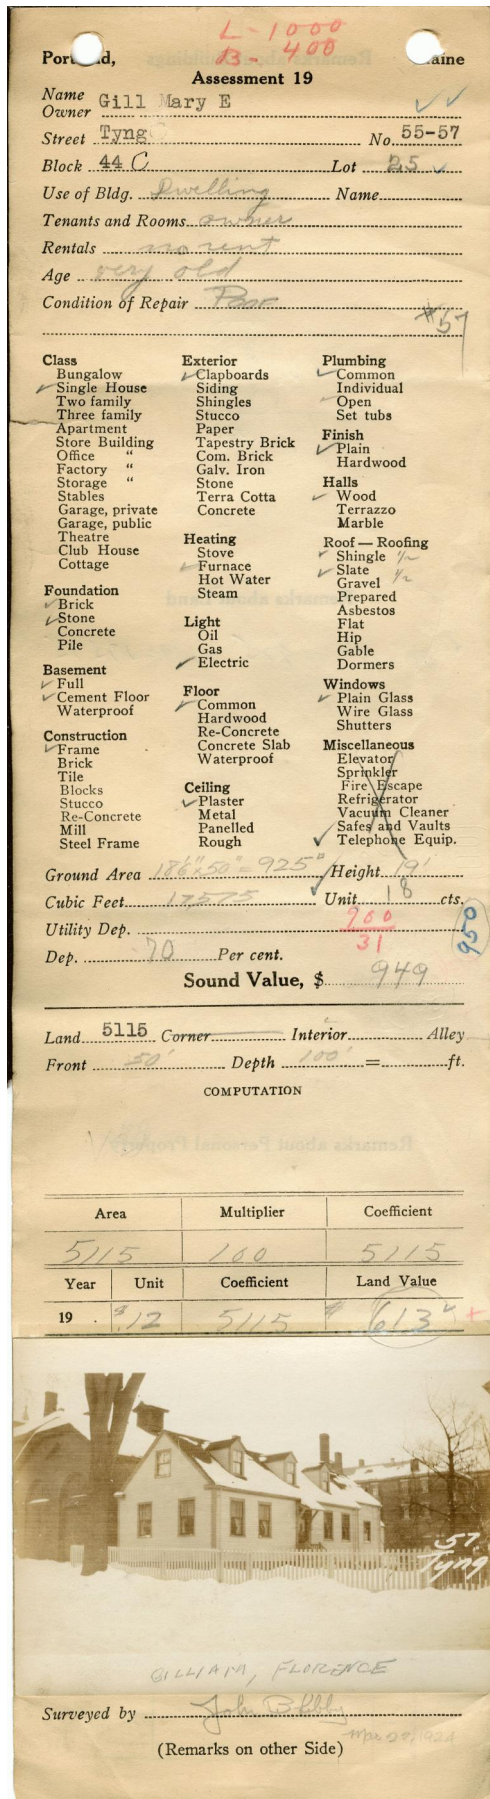 L-1000
B- 400
Port nd, aine
Assessment 19
Name
Owner Gill Mary E
Street Tyng No. 55-57
Block 44 C Lot 25
Use of Bldg. Dwelling Name
Tenants and Rooms owner
Rentals no rent
Age very old
Condition of Repair Poor
#57
Class
Bungalow
Single House
Two family
Three family
Apartment
Store Building
Office "
Factory "
Storage "
Stables
Garage, private
Garage, public
Theatre
Club House
Cottage
Foundation
Brick
Stone
Concrete
Pile
Basement
Full
Cement Floor
Waterproof
Construction
Frame
Brick
Tile
Blocks
Stucco
Re-Concrete
Mill
Steel Frame
Exterior
Clapboards
Siding
Shingles
Stucco
Paper
Tapestry Brick
Com. Brick
Galv. Iron
Stone
Terra Cotta
Concrete
Heating
Stove
Furnace
Hot Water
Steam
Light
Oil
Gas
Electric
Floor
Common
Hardwood
Re-Concrete
Concrete Slab
Waterproof
Ceiling
Plaster
Metal
Panelled
Rough
Plumbing
Common
Individual
Open
Set tubs
Finish
Plain
Hardwood
Halls
Wood
Terrazzo
Marble
Roof — Roofing
Shingle 1/2
Slate 1/2
Gravel
Prepared
Asbestos
Flat
Hip
Gable
Dormers
Windows
Plain Glass
Wire Glass
Shutters
Miscellaneous
Elevator
Sprinkler
Fire Escape
Refrigerator
Vacuum Cleaner
Safes and Vaults
Telephone Equip.
Ground Area 18'6"x50' = 925 Height 19'
Cubic Feet 17,575 Unit 18 cts.
Utility Dep. 900
31
950
Dep. 70 Per cent.
Sound Value, $ 949
Land 5115 Corner Interior Alley
Front 50' Depth 100' = ft.
COMPUTATION
Area Multiplier Coefficient
5115 100 5115
Year Unit Coefficient Land Value
19 $.12 5115 $ 613 +
57
Tyng
GILLIAM, FLORENCE
Surveyed by John B
(Remarks on other Side)